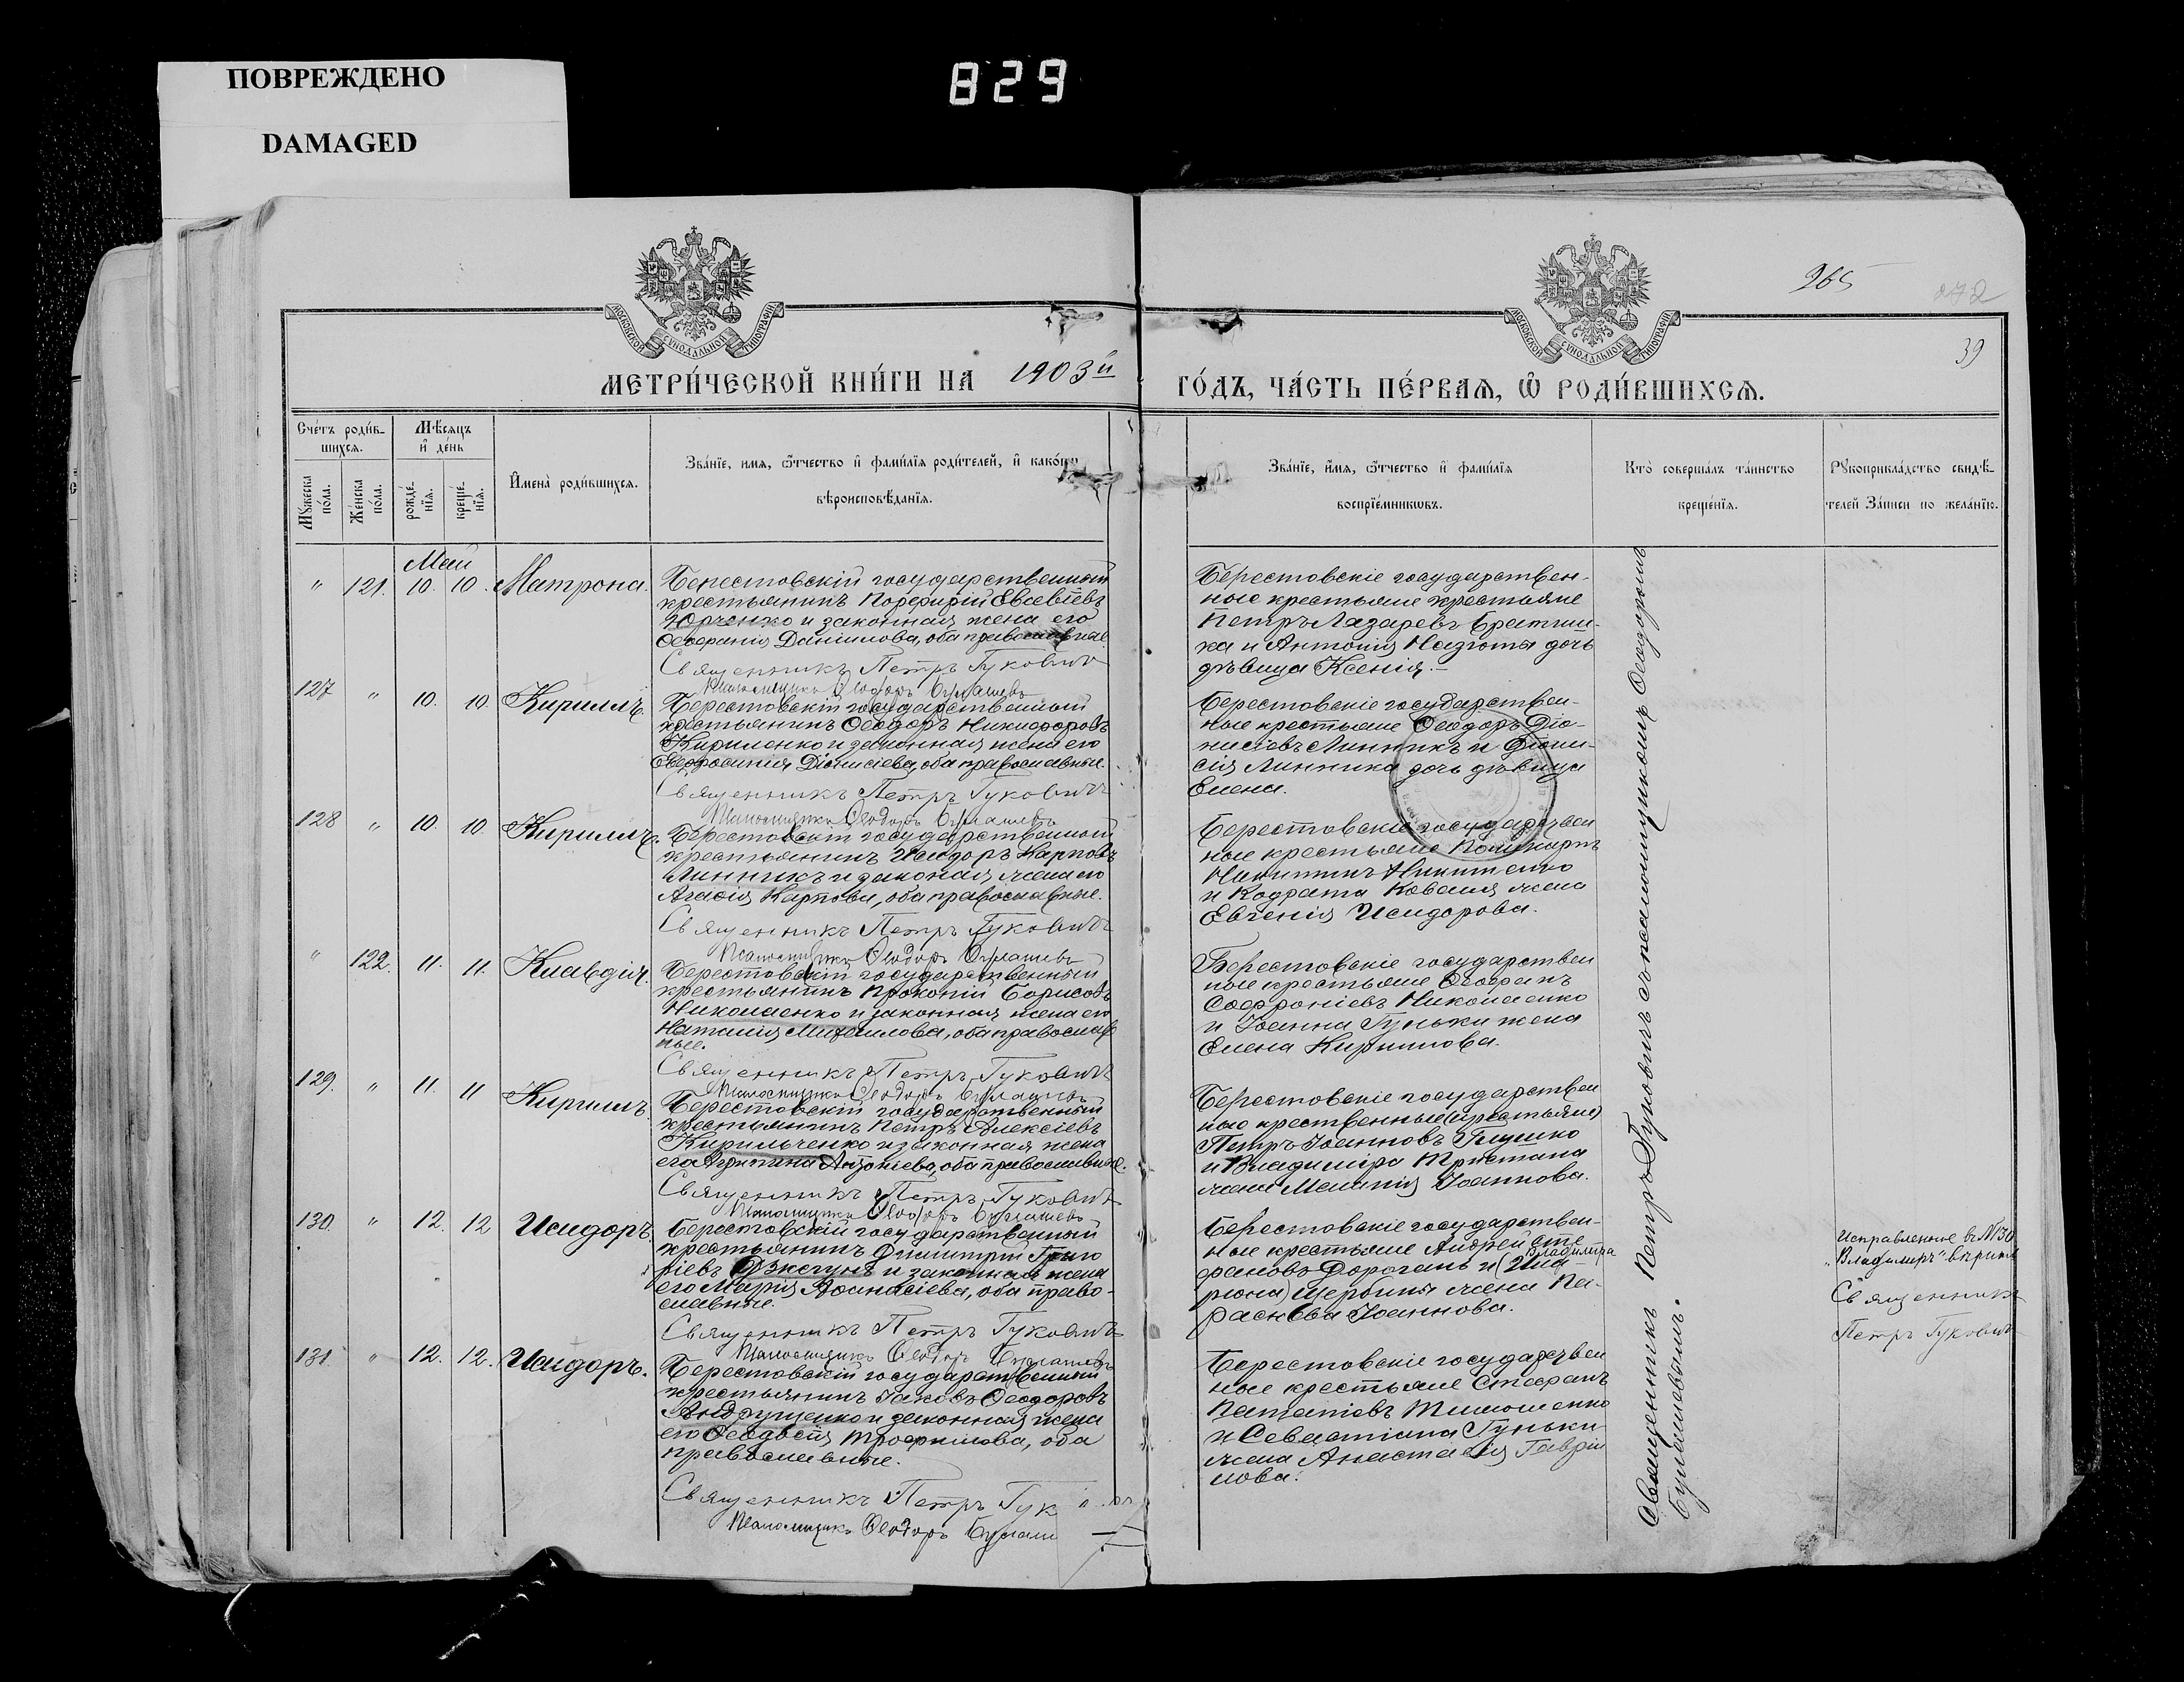 ПОВРЕЖДЕНО
DAMAGED
829
265
272
39
МОСКОВСКОЙ СѴНОДАЛЬНОЙ ТИПОГРАФІИ
МОСКОВСКОЙ СѴНОДАЛЬНОЙ ТИПОГРАФІИ
МЕТРИ́ЧЕСКОЙ КНИ́ГИ НА 1903й ГО́ДЪ, ЧА́СТЬ ПЕ́РВАЯ, Ѡ҆ РОДИ́ВШИХСЯ.
Сче́тъ роди́в-
шихся.
Мѣ́сяцъ
и҆ де́нь
Мꙋ́жеска по́ла.
Же́нска по́ла.
рожде́-
нїя.
креще́-
нїя.
И҆мена̀ роди́вшихся.
Зва́нїе, имя, ѻ҆́тчество и҆ фами́лїя роди́телей, и҆ како́гѡ
вѣроисповѣ́данїя.
Зва́нїе, и҆́мя, ѻ҆́тчество и҆ фами́лїя
воспрїе́мникѡвъ.
Кто̀ соверша́лъ та́инство
креще́нїя.
Рꙋкоприкла́дство свидѣ́-
телей за́писи по жела́нїю.
Май
" 121. 10. 10. Матрона.
Берестовскій государственный
крестьянинъ Порфирій Евсевіевъ
Юрченко и законная жена его
Ѳеофанія Даніилова, оба православные
Священникъ Петръ Гуковичъ
Псаломщикъ Ѳеодоръ Булашевъ
Берестовскіе государствен-
ные крестьяне крестьяне
Петръ Лазаревъ Братиш-
ка и Антонія дочь
дѣвица Ксенія.
127 " 10. 10 Кириллъ.
Берестовскій государственный
крестьянинъ Ѳеодоръ Никифоровъ
Кириленко и законная жена его
Евфросинія Діонисіева, оба православные.
Священникъ Петръ Гуковичъ
Псаломщикъ Ѳеодоръ Булашевъ
Берестовскіе государствен-
ные крестьяне Ѳеодоръ Діо-
нисіевъ Линникъ и Діони-
сія Линника дочь дѣвица
Елена.
128 " 10. 10 Кириллъ.
Берестовскій государственный
крестьянинъ Исидоръ Карповъ
Линникъ и законная жена его
Агафія Карпова, оба православные.
Священникъ Петръ Гуковичъ
Псаломщикъ Ѳеодоръ Булашевъ
Берестовскіе государствен
ные крестьяне Поликарпъ
Никитинъ Никитенко
и Кодрата Коваля жена
Евгенія Исидорова.
" 122. 11. 11. Клавдія.
Берестовскій государственный
крестьянинъ Прокопій Борисовъ
Николаенко и законная жена его
Наталія Михаилова, оба православ
ные.
Священникъ Петръ Гуковичъ
Псаломщикъ Ѳеодоръ Булашевъ
Берестовскіе государствен
ные крестьяне Ѳеофанъ
Софроніевъ Николаенко
и Іоанна Гуньки жена
Елена Кириллова.
129. " 11. 11 Кириллъ.
Берестовскій государственный
крестьянинъ Петръ Алексіевъ
Кирильченко и законная жена
его Агрипина Антоніева, оба православные.
Священникъ Петръ Гуковичъ
Псаломщикъ Ѳеодоръ Булашевъ
Берестовскіе государствен
ные крественные (крестьяне)
Петръ Іоанновъ Глушко
и Владиміра Тристана
жена Меланія Іоаннова.
130. " 12. 12 Исидоръ.
Берестовскій государственный
крестьянинъ Димитрій Григо
ріевъ и законная жена
его Марія Аѳанасіева, оба право-
славные.
Священникъ Петръ Гуковичъ
Псаломщикъ Ѳеодоръ Булашевъ
Берестовскіе государствен-
ные крестьяне Андрей Сте
фановъ Дорогань и Владиміра (Ила-
ріона) Щербины жена Па-
раскева Іоаннова.
Исправленное въ №130
"Владиміръ" вѣрно
Священникъ
Петръ Гуковичъ
131. " 12. 12. Исидоръ.
Берестовскій государственный
крестьянинъ Іаковъ Ѳеодоровъ
Андрущенко и законная жена
его Ѳеодосія Трофимова, оба
православные.
Священникъ Петръ Гук
Псаломщикъ Ѳеодоръ Булаш
Берестовскіе государствен
ные крестьяне Стефанъ
Тимошенко
и Севастіана Гуньки
жена Анастасія Гаври
лова.
Священникъ Петръ Гуковичъ съ псаломщикомъ Ѳеодоромъ
Булашевымъ.